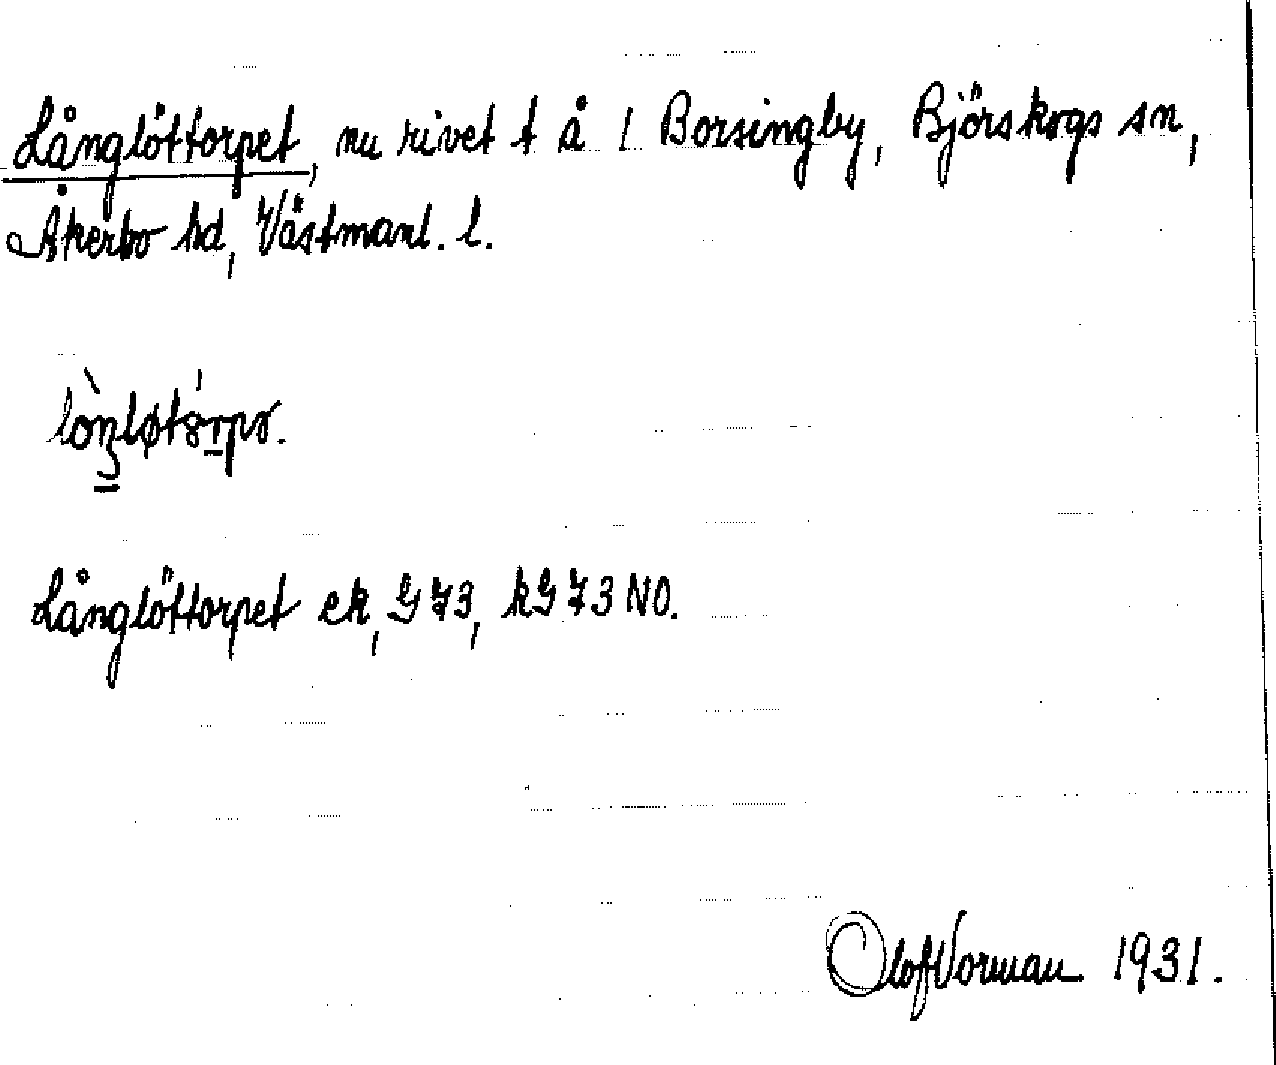 Långlöttorpet, nu rivet t å 1 Borsingby, Björskogs sn,
Åkerbo hd, Västmanl. l.
Långlöttorpet ek, G 73, kG 73 NO.
Olof Norman 1931.